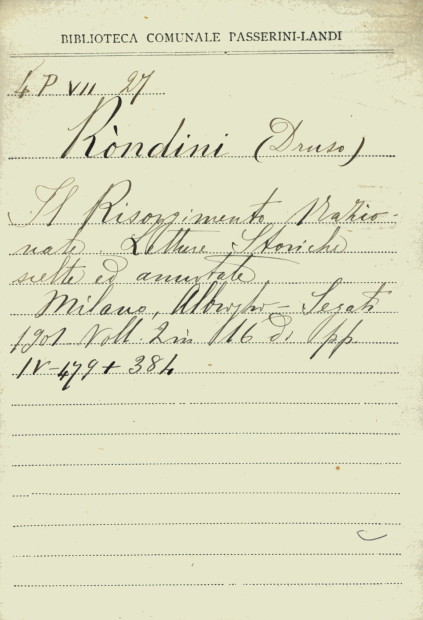 BIBLIOTECA COMUNALE PASSERINI-LANDI
4 P VII 27
Ròndini (Druso)
Il Risorgimento Nazio-
nale. Letture Storiche
scelte ed annotate
Milano, Albrighi - Segati
1901 Voll. 2 in 16 di pp
IV-479 + 384